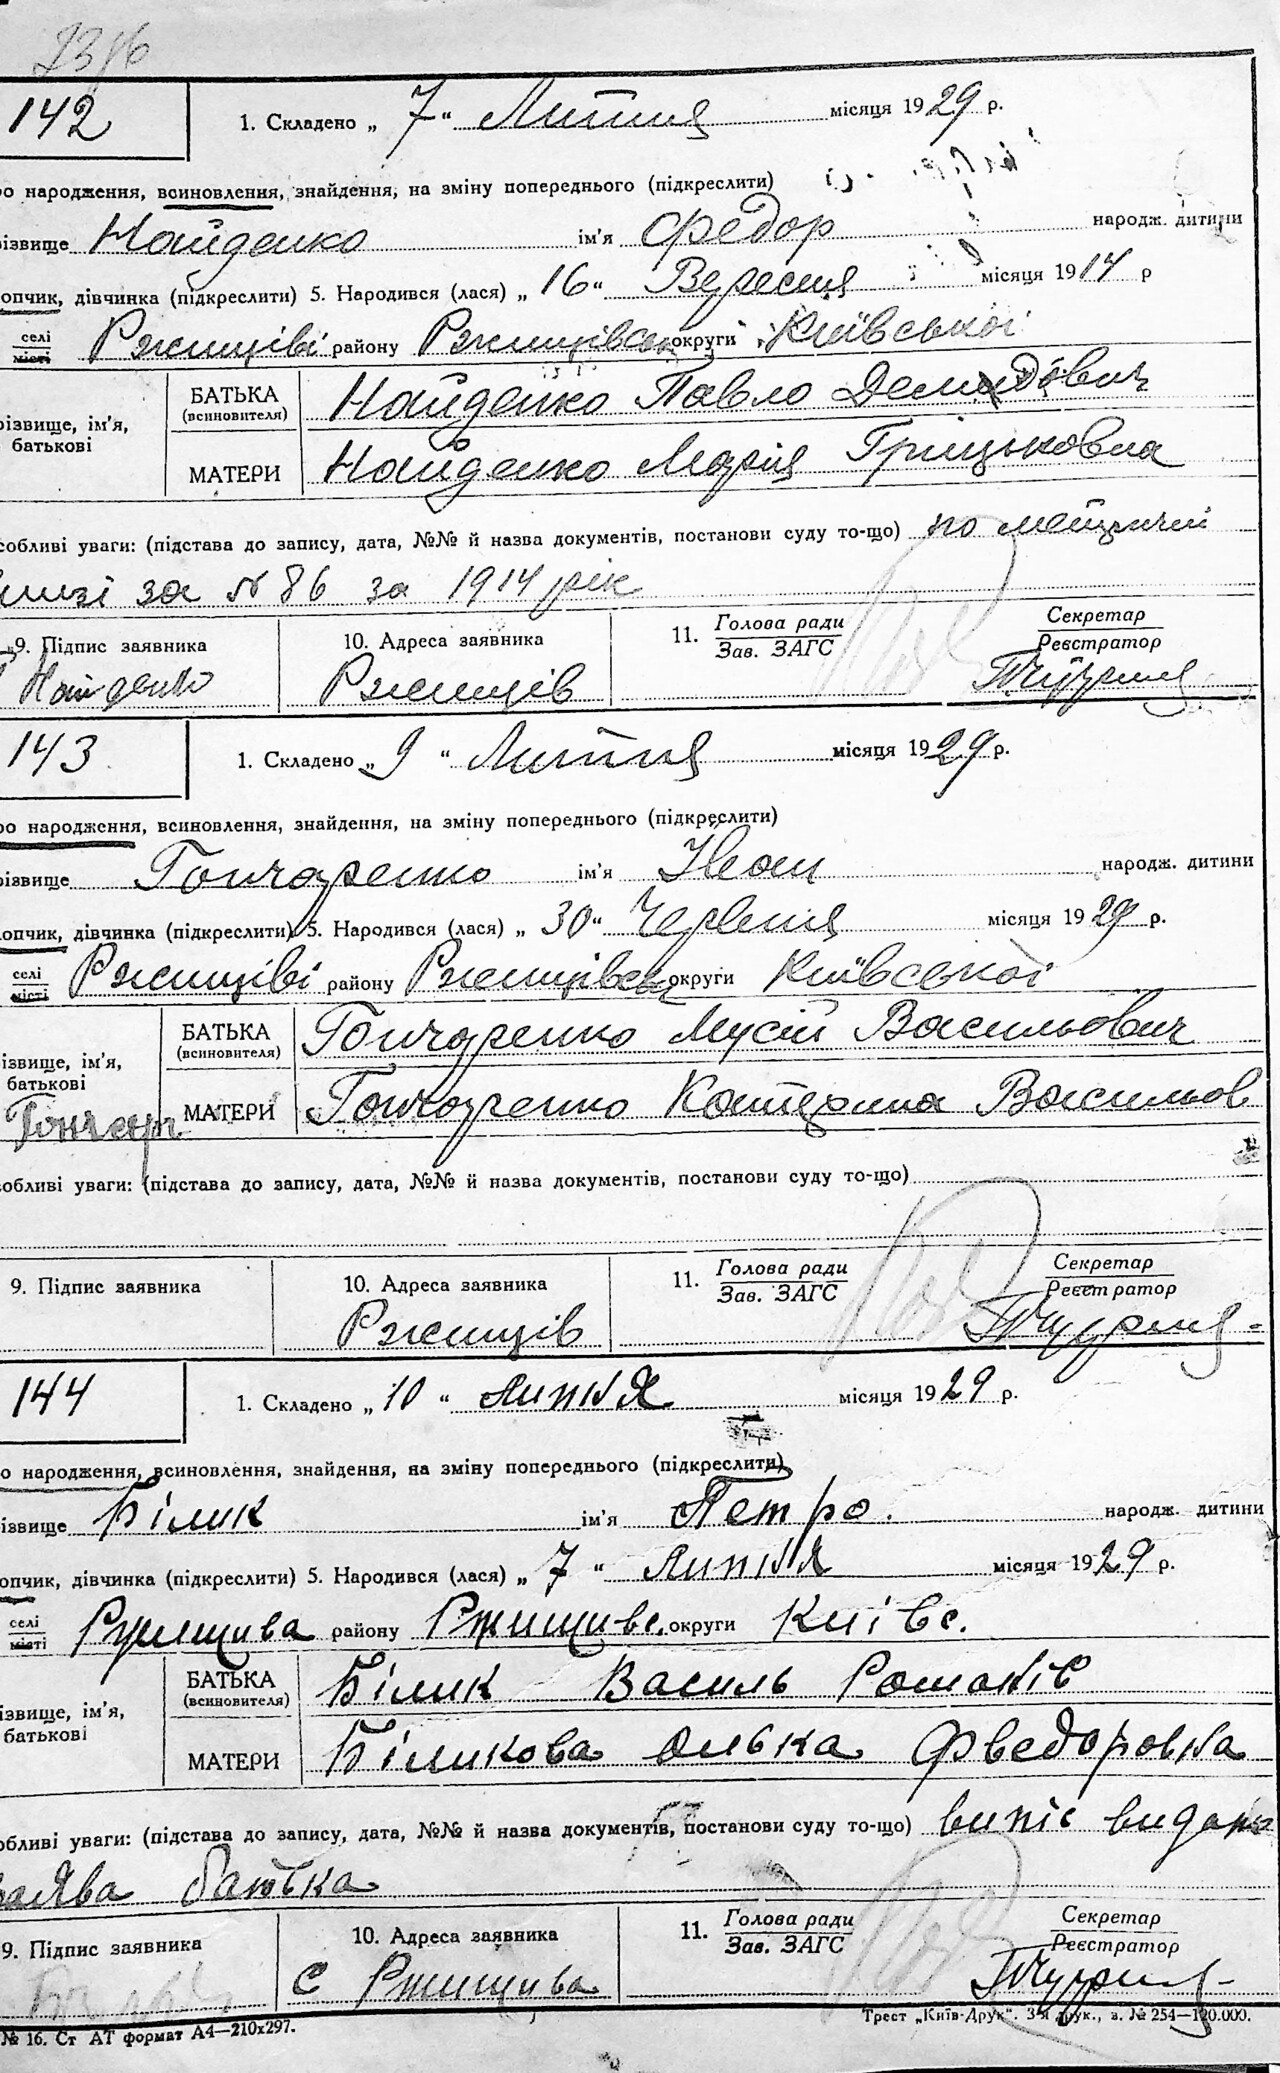 142
1. Складено „ 7 " Липня місяця 1929 р.
ро народження, всиновлення, знайдення, на зміну попереднього (підкреслити)
різвище Найденко ім'я Федор народж. дитини
опчик, дівчинка (підкреслити) 5. Народився (лася) „ 16 " Вересня місяця 1914 р
селі
місті Ржищіві району Ржищівськ округи Київської
різвище, ім'я,
батькові
БАТЬКА
(всиновителя) Найденко Павло Демидович
МАТЕРИ Найденко Марія Гріцьковна
собливі уваги: (підстава до запису, дата, №№ й назва документів, постанови суду то-що) по метричній
книзі за N 86 за 1914 рік
9. Підпис заявника
Найденко
10. Адреса заявника
Ржищів
11. Голова ради
Зав. ЗАГС
Секретар
Реєстратор
143
1. Складено „ 9 " Липня місяця 1929 р.
ро народження, всиновлення, знайдення, на зміну попереднього (підкреслити)
різвище Гончаренко ім'я Іван народж. дитини
опчик, дівчинка (підкреслити) 5. Народився (лася) „ 30 " Червня місяця 1929 р.
селі
місті Ржищіві району Ржищівськ округи Київської
ізвище, ім'я,
батькові
БАТЬКА
(всиновителя) Гончаренко Мусій Васильович
МАТЕРИ Гончаренко Катерина Васильов
Гончар
собливі уваги: (підстава до запису, дата, №№ й назва документів, постанови суду то-що)
9. Підпис заявника
10. Адреса заявника
Ржищів
11. Голова ради
Зав. ЗАГС
Секретар
Реєстратор
144
1. Складено „ 10 " Липня місяця 1929 р.
о народження, всиновлення, знайдення, на зміну попереднього (підкреслити)
ізвище Білик ім'я Петро. народж. дитини
опчик, дівчинка (підкреслити) 5. Народився (лася) „ 7 " Липня місяця 1929 р.
селі
місті Ржищива району Ржищивс. округи Киівс.
ізвище, ім'я,
батькові
БАТЬКА
(всиновителя) Білик Василь Романів
МАТЕРИ Біликова Олька Фведоровна
обливі уваги: (підстава до запису, дата, №№ й назва документів, постанови суду то-що) випіс видан
заява батька
9. Підпис заявника
10. Адреса заявника
с Ржищива
11. Голова ради
Зав. ЗАГС
Секретар
Реєстратор
№ 16. Ст АТ формат А4—210х297.
Трест „Київ-Друк". 3-я друк., з. № 254—120.000.